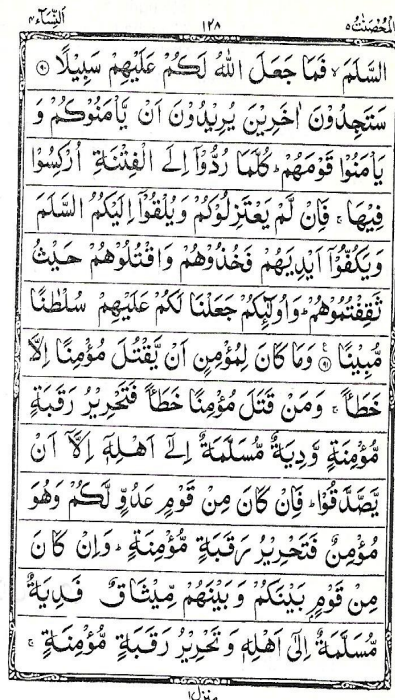 اَلنِّسَآء ٤
١٢٨
اَلْمُحْصَنٰتُ ٥
السَّلَمَ ۙ فَمَا جَعَلَ اللّٰهُ لَكُمْ عَلَيْهِمْ سَبِيْلًا ﴿٩٠﴾
سَتَجِدُوْنَ اٰخَرِيْنَ يُرِيْدُوْنَ اَنْ يَّاْمَنُوْكُمْ وَ
يَاْمَنُوْا قَوْمَهُمْ ؕ كُلَّمَا رُدُّوْۤا اِلَى الْفِتْنَةِ اُرْكِسُوْا
فِيْهَا ۚ فَاِنْ لَّمْ يَعْتَزِلُوْكُمْ وَيُلْقُوْۤا اِلَيْكُمُ السَّلَمَ
وَيَكُفُّوْۤا اَيْدِيَهُمْ فَخُذُوْهُمْ وَاقْتُلُوْهُمْ حَيْثُ
ثَقِفْتُمُوْهُمْ ؕ وَاُولٰٓئِكُمْ جَعَلْنَا لَكُمْ عَلَيْهِمْ سُلْطٰنًا
مُّبِيْنًا ﴿٩١﴾ وَمَا كَانَ لِمُؤْمِنٍ اَنْ يَّقْتُلَ مُؤْمِنًا اِلَّا
خَطَـًٔا ۚ وَمَنْ قَتَلَ مُؤْمِنًا خَطَـًٔا فَتَحْرِيْرُ رَقَبَةٍ
مُّؤْمِنَةٍ وَّدِيَةٌ مُّسَلَّمَةٌ اِلٰٓى اَهْلِهٖۤ اِلَّاۤ اَنْ
يَّصَّدَّقُوْا ؕ فَاِنْ كَانَ مِنْ قَوْمٍ عَدُوٍّ لَّكُمْ وَهُوَ
مُؤْمِنٌ فَتَحْرِيْرُ رَقَبَةٍ مُّؤْمِنَةٍ ؕ وَاِنْ كَانَ
مِنْ قَوْمٍۭ بَيْنَكُمْ وَبَيْنَهُمْ مِّيْثَاقٌ فَدِيَةٌ
مُّسَلَّمَةٌ اِلٰٓى اَهْلِهٖ وَتَحْرِيْرُ رَقَبَةٍ مُّؤْمِنَةٍ ۚ
منزل ١